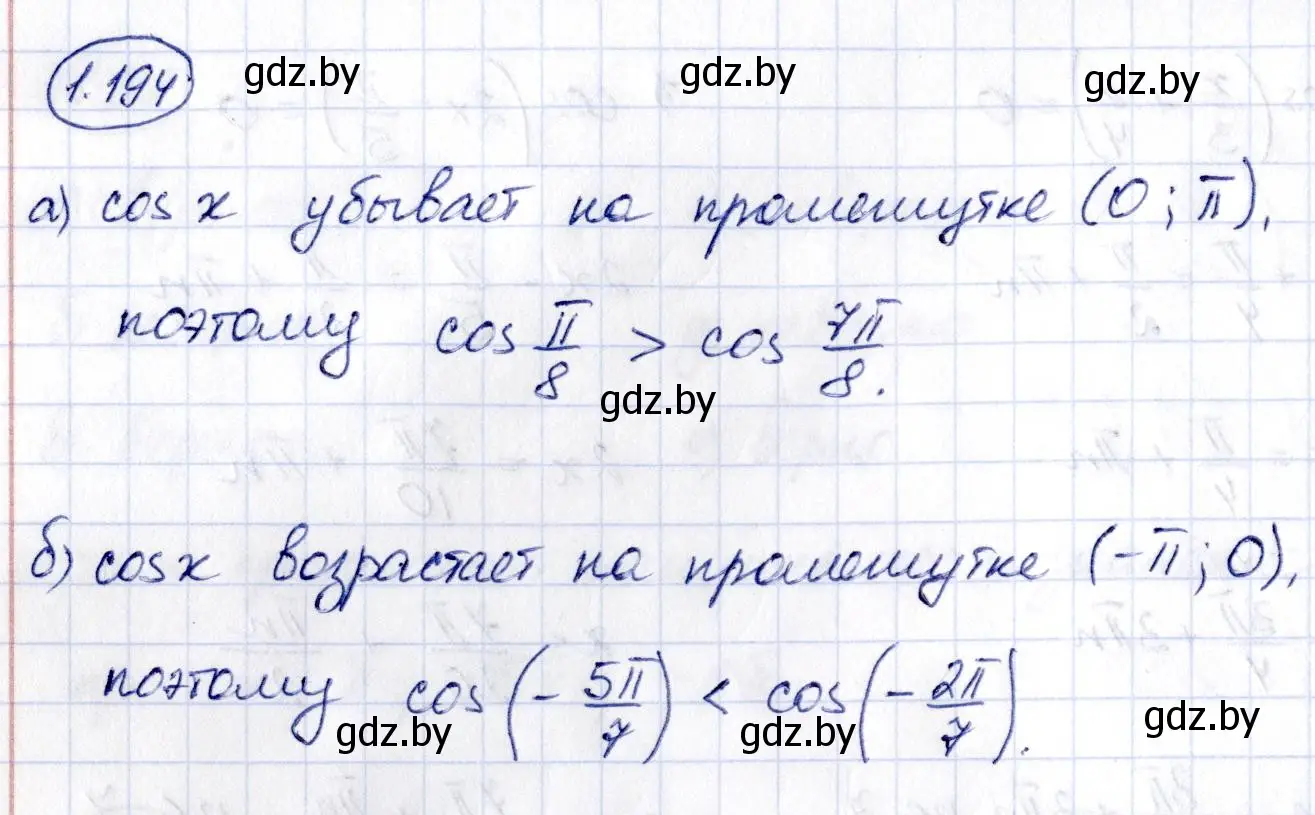 1.194
gdz.by gdz.by gdz.by
а) cos x убывает на промежутке (0; π),
поэтому cos π/8 > cos 7π/8.
gdz.by
б) cos x возрастает на промежутке (-π; 0),
поэтому cos(-5π/7) < cos(-2π/7).
gdz.by gdz.by gdz.by